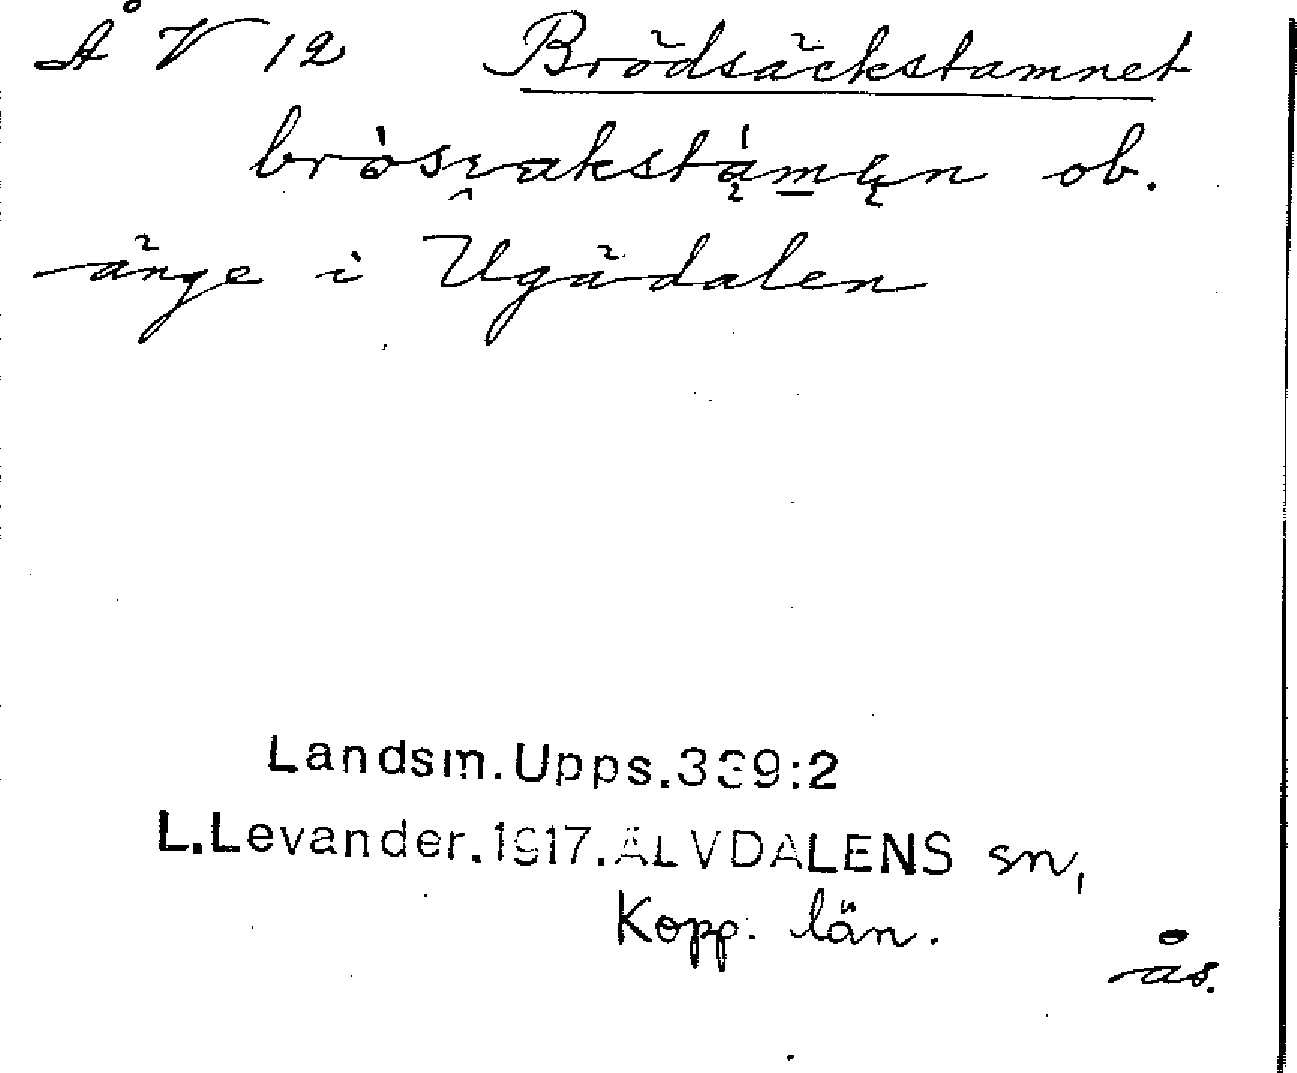 Å V 12 Brödsäckstamnet
ob.
änge i Ugådalen
Landsm.Upps.339:2
L.Levander.1917.ÄLVDALENS sn,
Kopp. län.
ås.